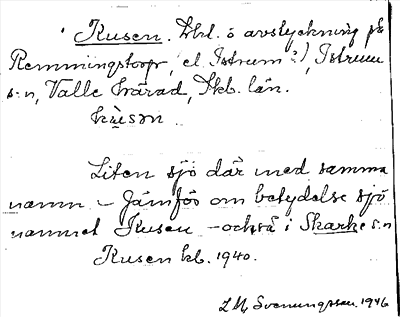 Kusen. Lht. å avstyckning på
Remmingstorp, (el. Istrum?), Istrum
s:n, Valle härad, Skb. län.
kùsən
Liten sjö där med samma
namn. – Jämför om betydelse sjö
namnet Kusen – också i Skarke s:n
Kusen kb. 1940.
Svenungsson. 1946